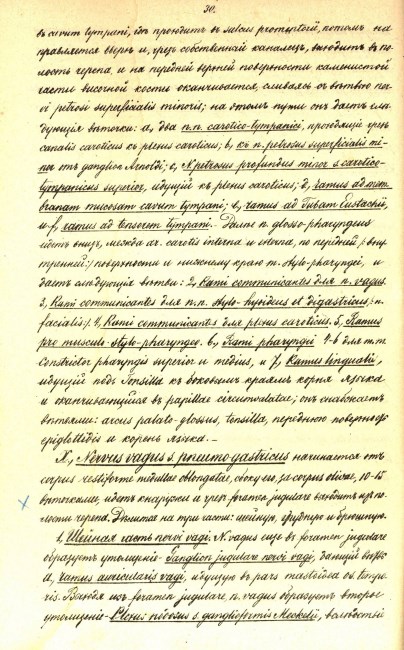 30.
въ cavum tympani, гдѣ проходитъ въ sulcus promontorii, потомъ на
правляется вверхъ и, чрезъ собственный каналецъ, выходитъ въ по
лость черепа, и на передней верхней поверхности каменистой
части височной кости оканчивается, сливаясь съ вѣтвью ner
vi petrosi superficialis minoris; на этомъ пути онъ даетъ слѣ
дующія вѣточки: a, два n.n. carotico-tympanici, проходящіе чрезъ
canalis caroticus къ plexus caroticus; b, къ n. petrosus superficialis mi
nor отъ ganglion Arnoldi; c, N. petrosus profundus minor s. carotico-
tympanicus superior, идущій къ plexus caroticus; d, ramus ad mem
branam mucosam cavum tympani; e, ramus ad Tubam Eustachii,
и f, ramus ad fenestram tympani. Далѣе n. glosso-pharyngeus
идетъ внизъ, между ar. carotis interna и externa, по передней (:внут
ренней:) поверхности и нижнему краю m. stylo-pharyngei, и
даетъ слѣдующія вѣтви: 2, Rami communicantes для n. vagus.
3, Rami communicantes для n.n. stylo-hyoideus et digastricus (:n.
facialis:). 4, Rami communicantes для plexus caroticus. 5, Ramus
pro musculo stylo-pharyngeo. 6, Rami pharyngei 4-6 для m.m.
constrictor pharyngis superior и medius, и 7, Ramus lingualis,
идущій подъ Tonsilla къ боковымъ краямъ корня языка
и оканчивающійся въ papillae circumvalatae; онъ снабжаетъ
вѣтвями: arcus palato-glossus, tonsilla, переднюю поверхность
epiglottidis и корень языка.
X, Nervus vagus s. pneumogastricus начинается отъ
corpus restiforme medullae oblongatae, сбоку ея, за corpus olivae, 10-15
вѣточками, идетъ кнаружи и чрезъ foramen jugulare выходитъ изъ по
лости черепа. Дѣлится на три части: шейную, грудную и брюшную.
1. Шейная часть nervi vagi. N. vagus еще въ foramen jugulare
образуетъ утолщеніе Ganglion jugulare nervi vagi, дающій
a, ramus auricularis vagi, идущую въ pars mastoidea os tempo
ris. Выйдя изъ foramen jugulare n. vagus образуетъ второе
утолщеніе Plexus nodosus s. gangliiformis Meckelii,